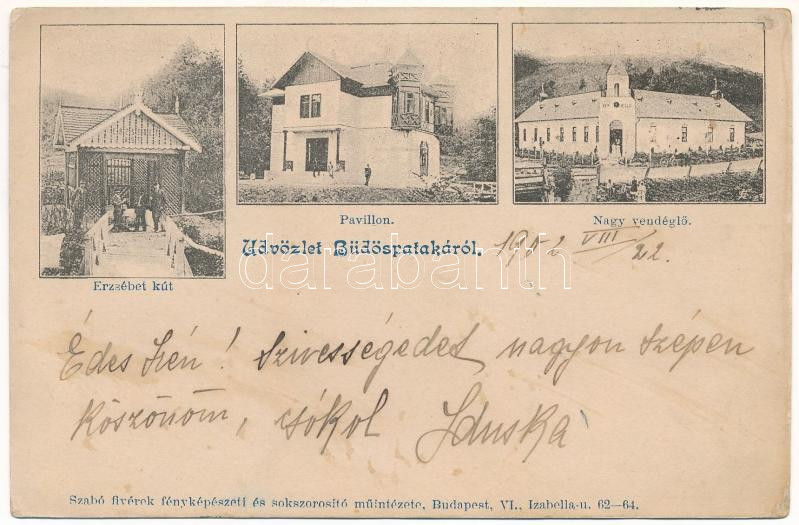 Pavillon.
Nagy vendéglő.
Erzsébet kút
Üdvözlet Büdöspatakáról.
1902 VIII/22.
darabanth
Édes Irén! Szivességedet nagyon szépen
köszönöm, csókol Iduska
Szabó fivérek fényképészeti és sokszorositó műintézete, Budapest, VI., Izabella-u. 62—64.